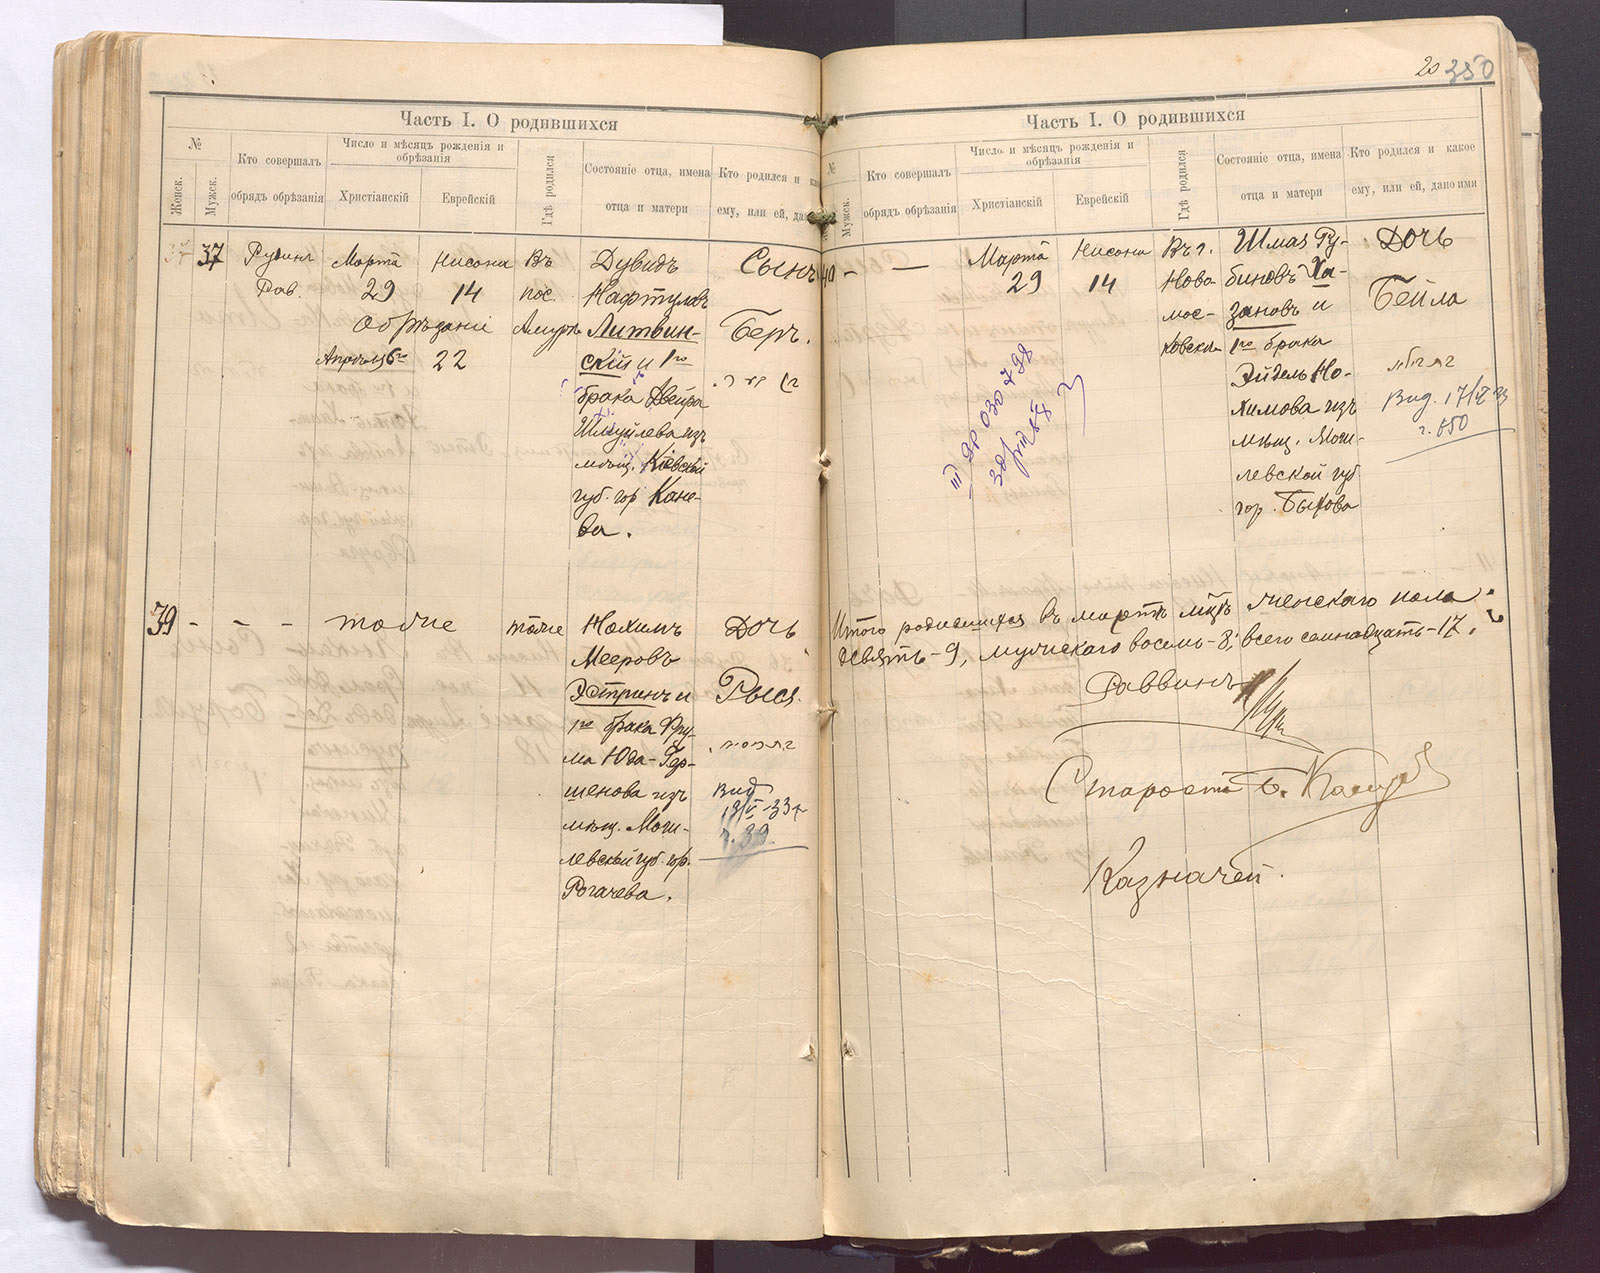 Часть I. О родившихся
№
Женск.
Мужск.
Кто совершалъ
обрядъ обрѣзанія
Число и мѣсяцъ рожденія и
обрѣзанія
Христіанскій
Еврейскій
Гдѣ родился
Состояніе отца, имена
отца и матери
Кто родился и
ему, или ей,
37
Рав.
Марта
29
Нисона
14
Обрѣзаніе
22
Въ
пос.
Дувидъ
Нафтулов
Литвин-
скій и 1го
брака Двейра
Шмуйлева изъ
мѣщ. Кіевской
губ. гор Кане-
ва.
Сынъ
Беръ.
39
-
-
-
тоже
тоже
Нохимъ
Мееровъ
Эстринъ и
1го брака Фру-
ма Юда-Гер-
шенова изъ
мѣщ. Моги-
левской губ. гор.
Рогачева.
Дочь
Рыся.
Вид
20 350
Часть I. О родившихся
№
Мужск.
Кто совершалъ
обрядъ обрѣзанія
Число и мѣсяцъ рожденія и
обрѣзанія
Христіанскій
Еврейскій
Гдѣ родился
Состояніе отца, имена
отца и матери
Кто родился и какое
ему, или ей, дано имя
40
-
—
Марта
29
Нисона
14
Въ г.
Ново-
мос-
ковске
Шмая Ру-
биновъ Ха-
зановъ и
1го брака
Эйдель Но-
химова изъ
мѣщ. Моги-
левской губ
гор. Быхова
Дочь
Бейла
Итого родившихся въ мартѣ мцѣ женскаго пола
девять-9, мужскаго восемь-8; всего семнадцать-17.
Раввинъ
Староста
Казначей.